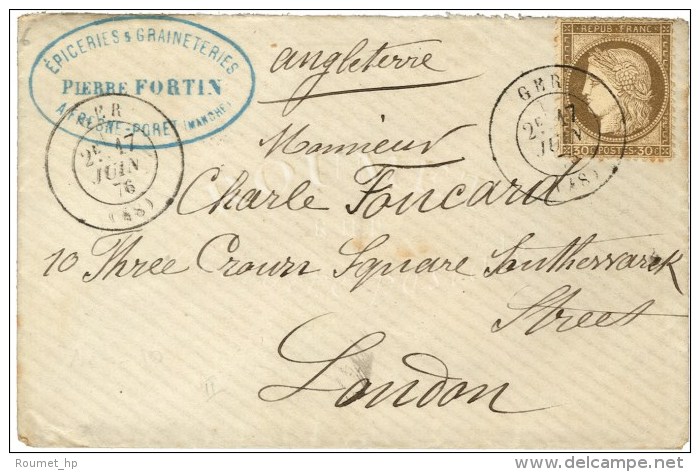 ÉPICERIES & GRAINETERIES
PIERRE FORTIN
A FRESNE-PORET (MANCHE)
GER
2E 17
JUIN
76
(48)
angleterre
REPUB. FRANC.
30 C POSTES 30 C
GER
2E 17
JUIN
(48)
Monsieur
Charle Foucard
10 Three Crown Square Southersvarck
Street
London
Roumet_hp
www.delcampe.net